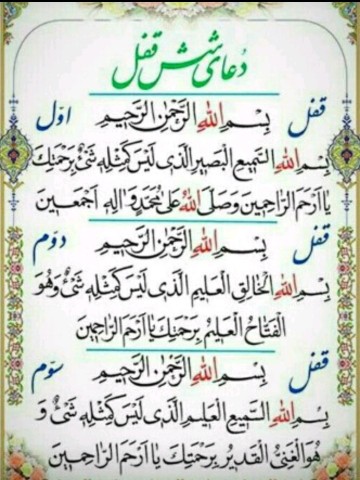 دُعای شش قفل
قفل اوّل
بِسْمِ اللهِ الرَّحْمٰنِ الرَّحیمِ
بِسْمِ اللهِ السَّمیعِ الْبَصیرِ الَّذی لَیْسَ کَمِثْلِهِ شَیْءٌ بِرَحْمَتِكَ
یا اَرْحَمَ الرّاحِمینَ وَصَلَّی اللهُ عَلیٰ مُحَمَّدٍ وَ الِهِ اَجْمَعینَ
قفل دوّم
بِسْمِ اللهِ الرَّحْمٰنِ الرَّحیمِ
بِسْمِ اللهِ الْخالِقِ الْعَلیمِ الَّذی لَیْسَ کَمِثْلِهِ شَیْءٌ وَهُوَ
الْفَتّاحُ الْعَلیمُ بِرَحْمَتِكَ یا اَرْحَمَ الرّاحِمینَ
قفل سوّم
بِسْمِ اللهِ الرَّحْمٰنِ الرَّحیمِ
بِسْمِ اللهِ السَّمیعِ الْعَلیمِ الَّذی لَیْسَ کَمِثْلِهِ شَیْءٌ وَ
هُوَ الْغَنِیُّ الْقَدیرُ بِرَحْمَتِكَ یا اَرْحَمَ الرّاحِمینَ